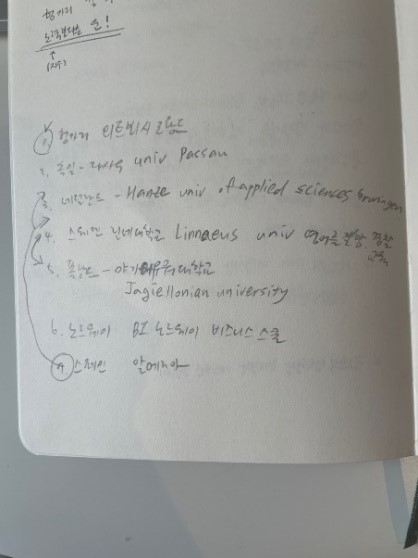 헝가리
(지수)
1. 헝가리
2. 독일 - 파사우 univ Passau
3. 네덜란드 - Hanze univ of applied sciences Groningen
4. 스웨덴 린네대학교 Linnaeus univ
5. 폴란드 - 야기엘로니아대학교
Jagiellonian university
6. 노르웨이 BI 노르웨이 비즈니스 스쿨
7. 스페인 알메리아